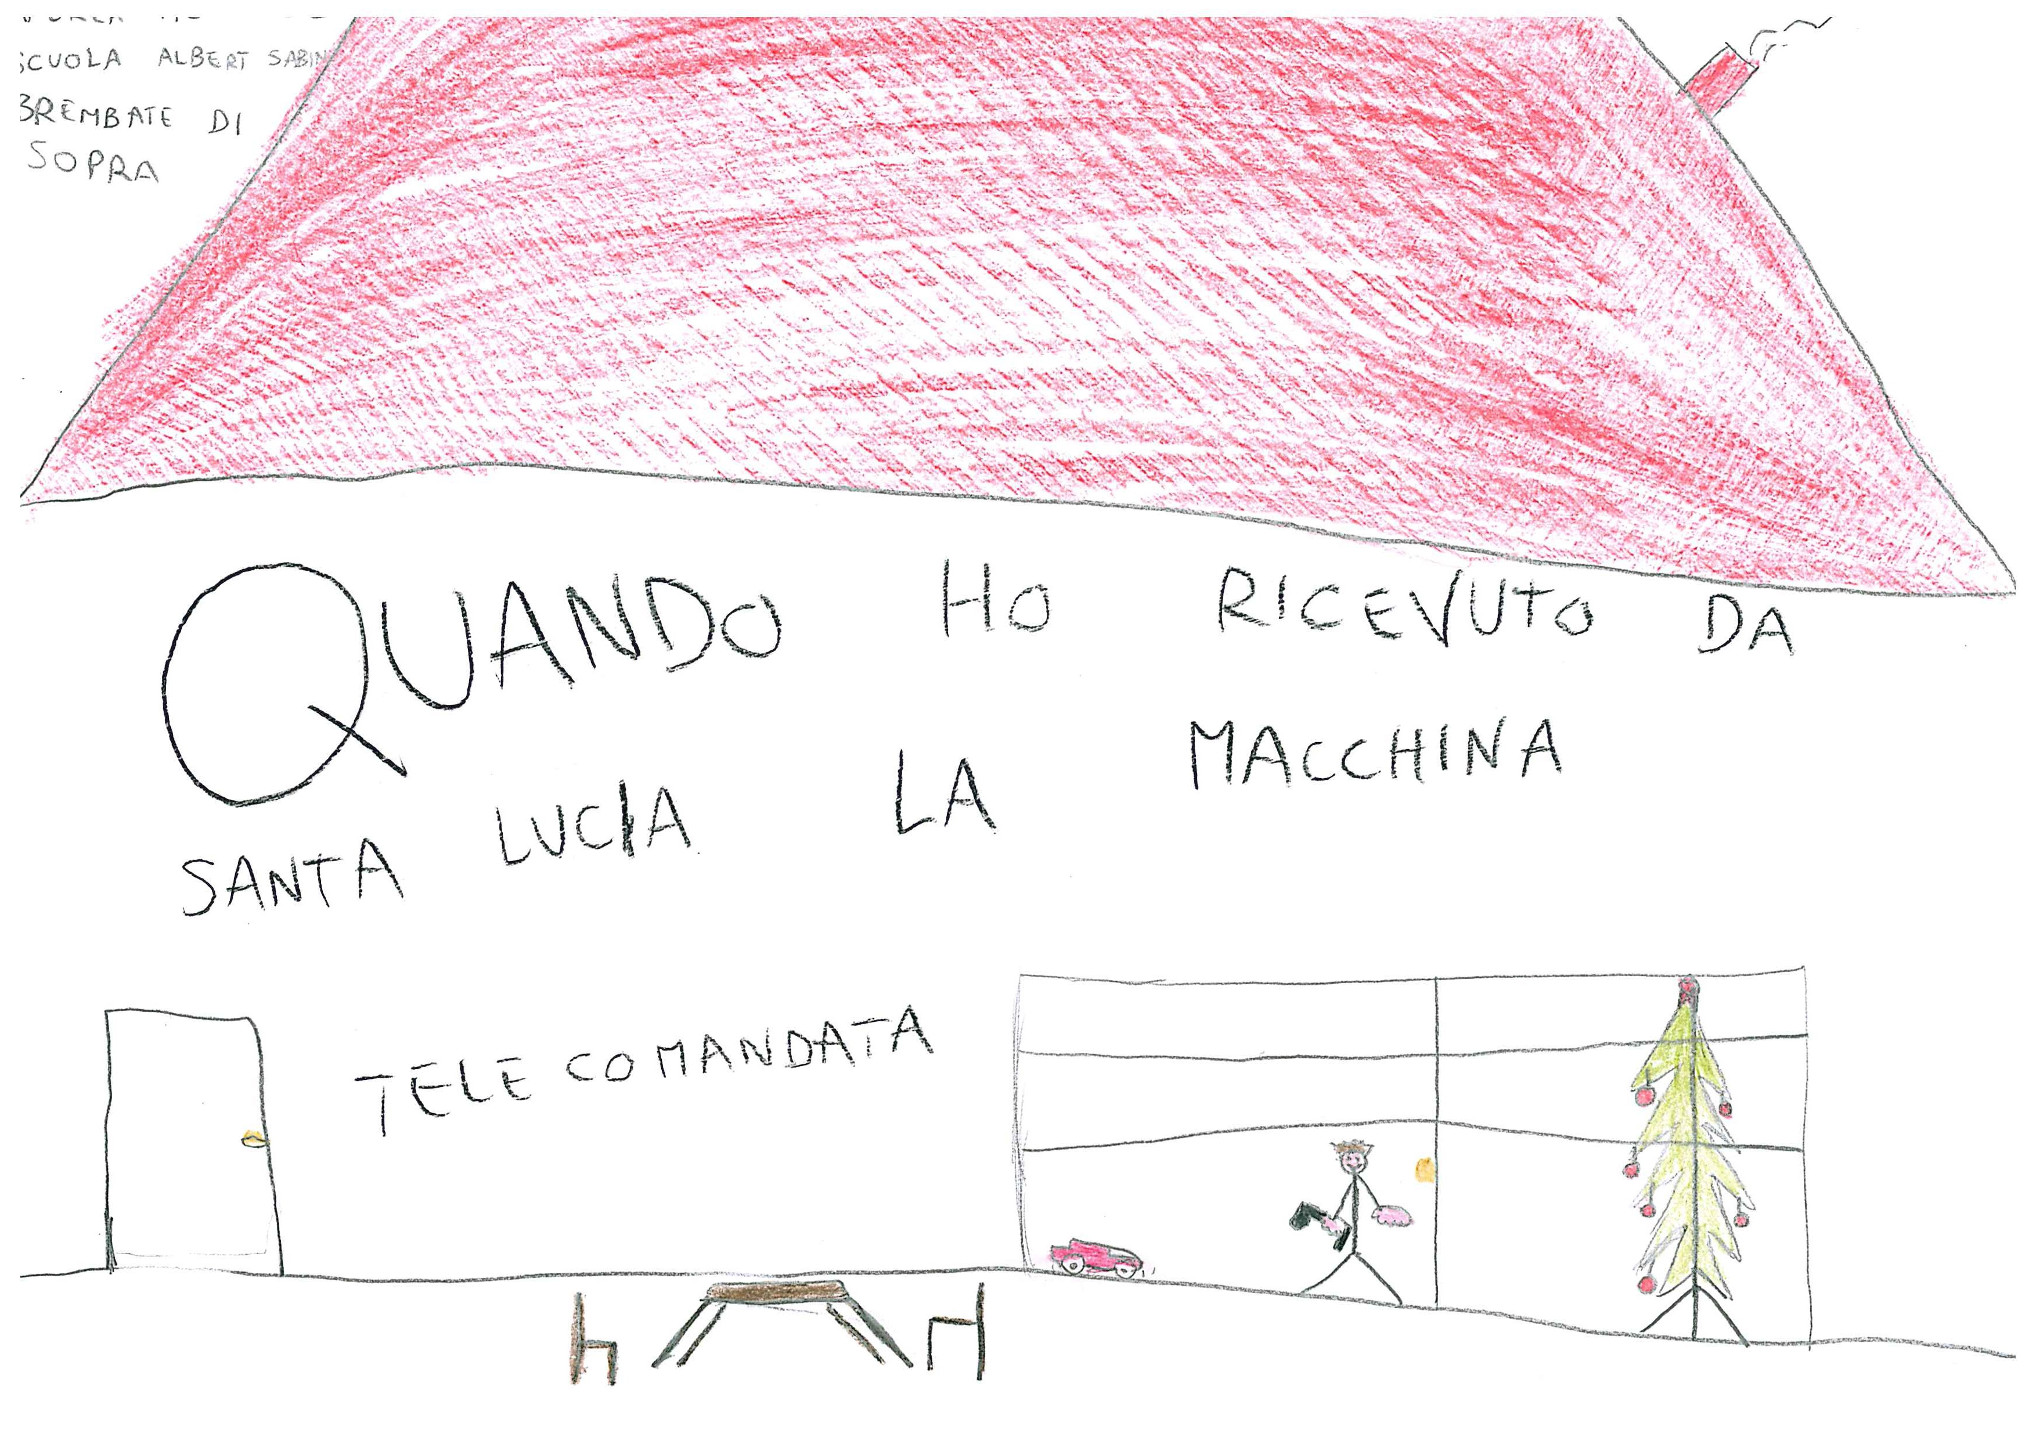 SCUOLA ALBERT SABIN
BREMBATE DI
SOPRA
QUANDO HO RICEVUTO DA
SANTA LUCIA LA MACCHINA
TELECOMANDATA